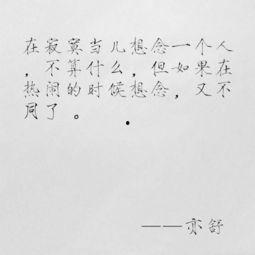 在寂寞当儿想念一个人
，不算什么，但如果在
热闹的时候想念，又不
同了。
——亦舒